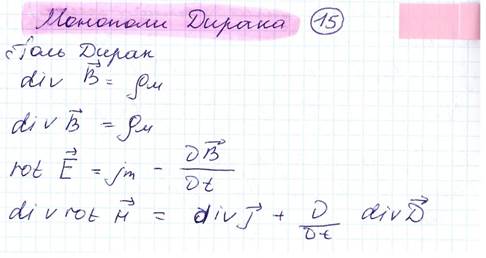 Монополи Дирака 15
Поль Дирак
div B⃗ = ρм
div B⃗ = ρм
rot E⃗ = jm - ∂B⃗/∂t
div rot H⃗ = div j⃗ + ∂/∂t div D⃗